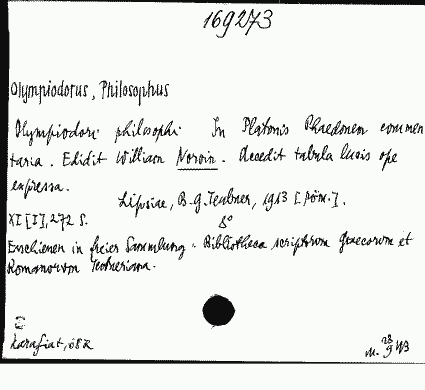 169273
Olympiodorus, Philosophus
Olympiodori philosophi In Platonis Phaedonem commen
taria. Edidit William Norvin. Accedit tabula lucis ope
expressa.
Lipsiae, B. G. Teubner, 1913 [Röm.].
XI [I], 272 S. 8°
Erschienen in freier Sammlung: Bibliotheca scriptorum Graecorum et
Romanorum Teubneriana.
Karafiat,